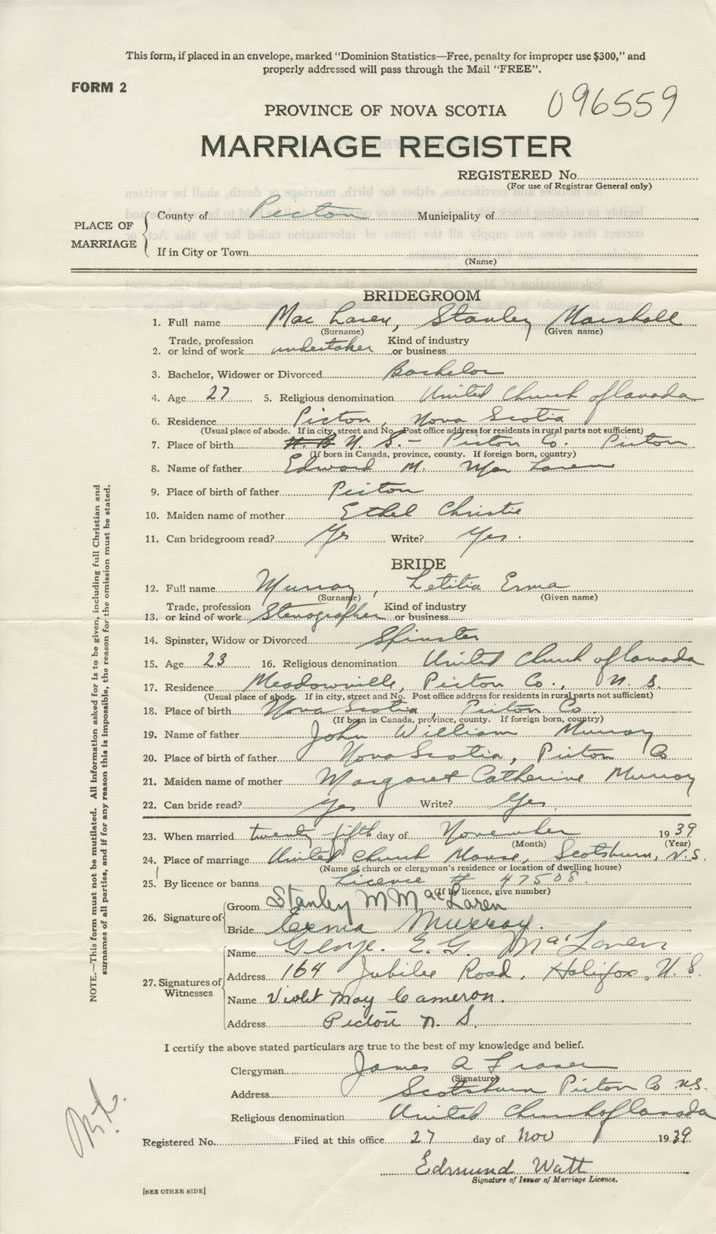 This form, if placed in an envelope, marked "Dominion Statistics—Free, penalty for improper use $300," and
properly addressed will pass through the Mail "FREE".
FORM 2
096559
PROVINCE OF NOVA SCOTIA
MARRIAGE REGISTER
REGISTERED No.
(For use of Registrar General only)
PLACE OF MARRIAGE
County of Pictou Municipality of
If in City or Town
(Name)
BRIDEGROOM
1. Full name Mac Laren, Stanley Marshall
(Surname) (Given name)
2. Trade, profession or kind of work undertaker Kind of industry or business
3. Bachelor, Widower or Divorced Bachelor
4. Age 27 5. Religious denomination United Church of Canada
6. Residence Pictou, Nova Scotia
(Usual place of abode. If in city, street and No. Post office address for residents in rural parts not sufficient)
7. Place of birth N. S. - Pictou Co. Pictou
(If born in Canada, province, county. If foreign born, country)
8. Name of father Edward M. Mac Laren
9. Place of birth of father Pictou
10. Maiden name of mother Ethel Christie
11. Can bridegroom read? Yes Write? Yes.
BRIDE
12. Full name Murray, Letitia Erma
(Surname) (Given name)
13. Trade, profession or kind of work Stenographer Kind of industry or business
14. Spinster, Widow or Divorced Spinster
15. Age 23 16. Religious denomination United Church of Canada
17. Residence Meadowville, Pictou Co., N. S.
(Usual place of abode. If in city, street and No. Post office address for residents in rural parts not sufficient)
18. Place of birth Nova Scotia Pictou Co.
(If born in Canada, province, county. If foreign born, country)
19. Name of father John William Murray
20. Place of birth of father Nova Scotia, Pictou Co
21. Maiden name of mother Margaret Catherine Murray
22. Can bride read? Yes Write? Yes.
23. When married twenty-fifth day of November 1939
(Month) (Year)
24. Place of marriage United Church Manse, Scotsburn, N.S.
(Name of church or clergyman's residence or location of dwelling house)
25. By licence or banns Licence # 47508
(If by licence, give number)
26. Signature of
Groom Stanley M MacLaren
Bride Erma Murray.
27. Signatures of Witnesses
Name George. E. G MacLaren
Address 164 Jubilee Road, Halifax, N. S.
Name Violet May Cameron.
Address Pictou N. S.
I certify the above stated particulars are true to the best of my knowledge and belief.
Clergyman James A Fraser
(Signature)
Address Scotsburn Pictou Co N.S.
Religious denomination United Church of Canada
Registered No. Filed at this office 27 day of Nov 1939
Edmund Watt
Signature of Issuer of Marriage Licence.
[SEE OTHER SIDE]
NOTE.—This form must not be mutilated. All information asked for is to be given, including full Christian and
surnames of all parties, and if for any reason this is impossible, the reason for the omission must be stated.